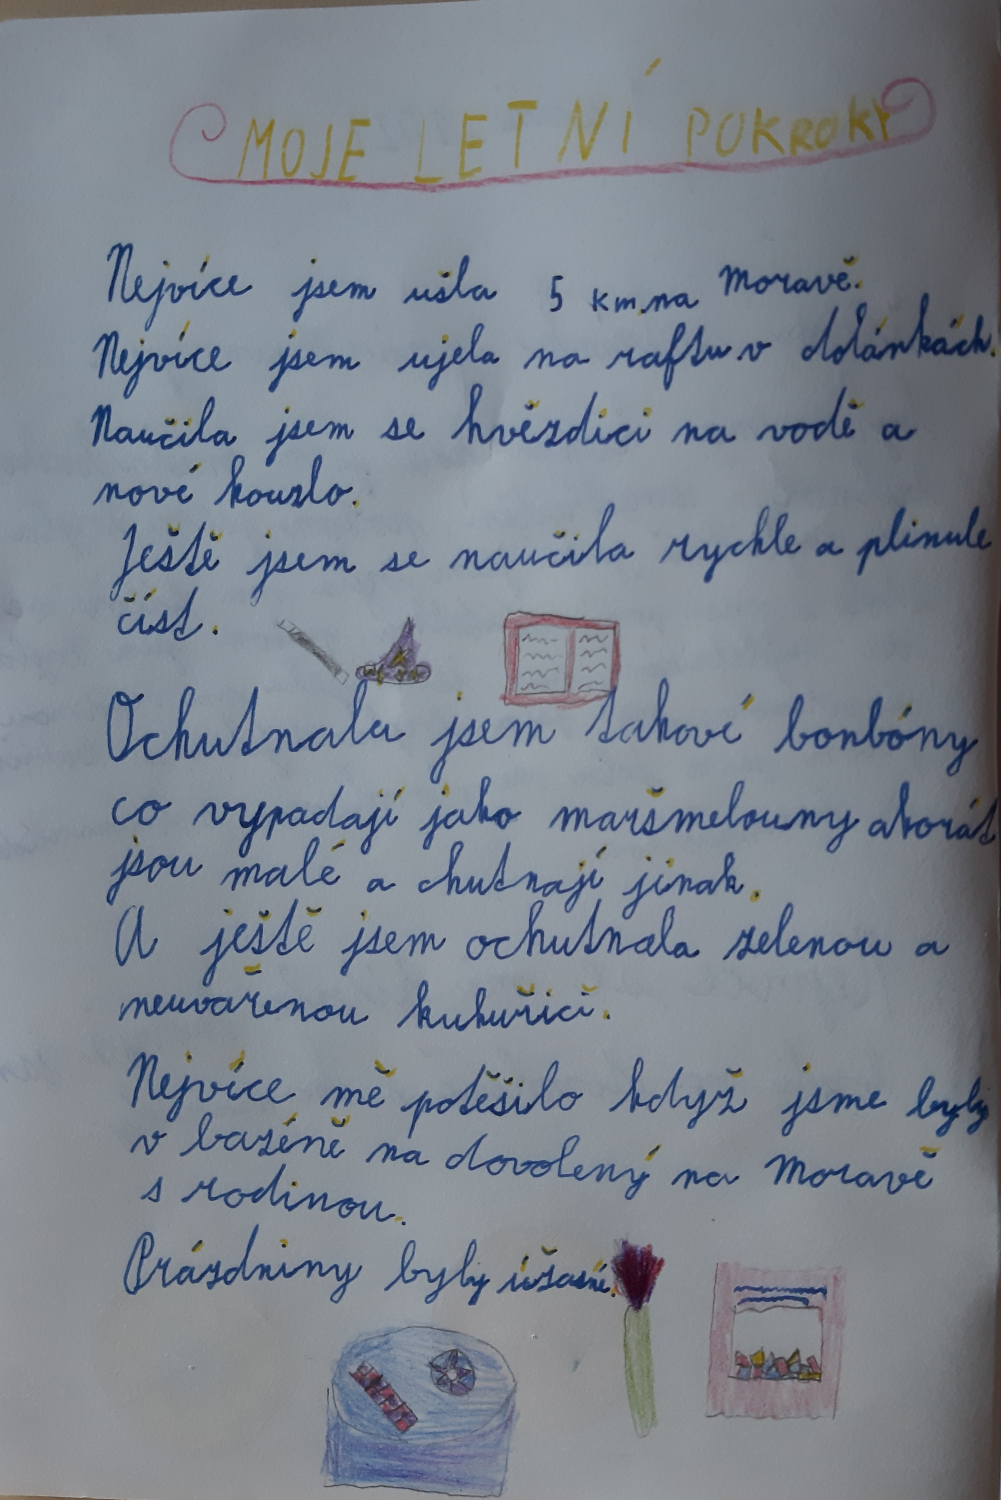 MOJE LETNÍ POKROKY
Nejvíce jsem ušla 5 km na Moravě.
Nejvíce jsem ujela na raftu v dolánkách.
Naučila jsem se hvězdici na vodě a
nové kouzlo.
Ještě jsem se naučila rychle a plinule
číst.
Ochutnala jsem takové bonbóny
co vypadají jako maršmelouny akorát
jsou malé a chutnají jinak.
A ještě jsem ochutnala zelenou a
neuvařenou kukuřici.
Nejvíce mě potěšilo když jsme byly
v bazéně na dovolený na Moravě
s rodinou.
Prázdniny byly úžasné.